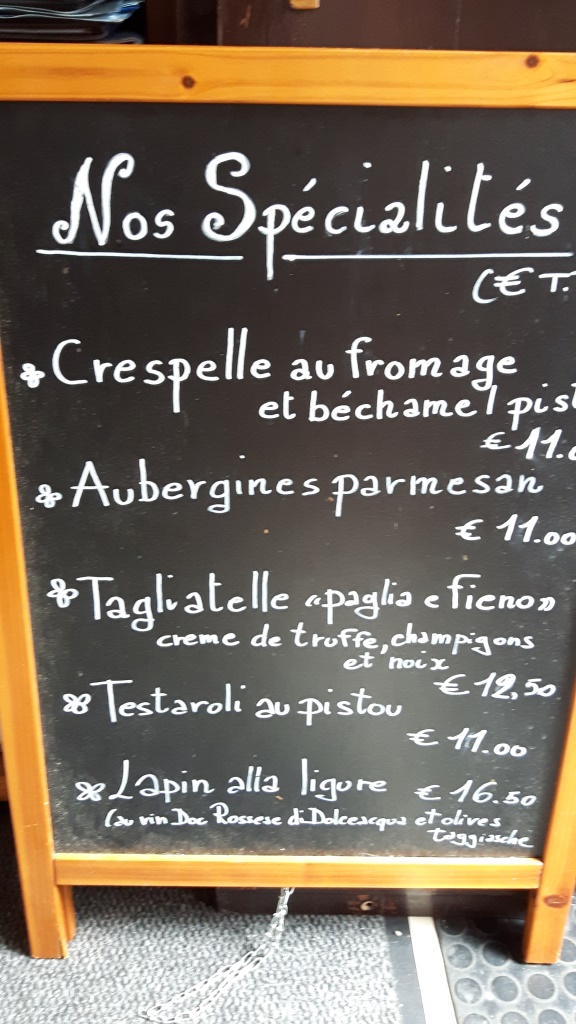 Nos Spécialités
(€ T.
Crespelle au fromage
et béchamel pist
€ 11.
Aubergines parmesan
€ 11.00
Tagliatelle «paglia e fieno»
creme de truffe, champigons
et noix
€ 12,50
Testaroli au pistou
€ 11.00
Lapin alla ligure € 16.50
(au vin Doc Rossese di Dolceacqua et olives
taggiasche